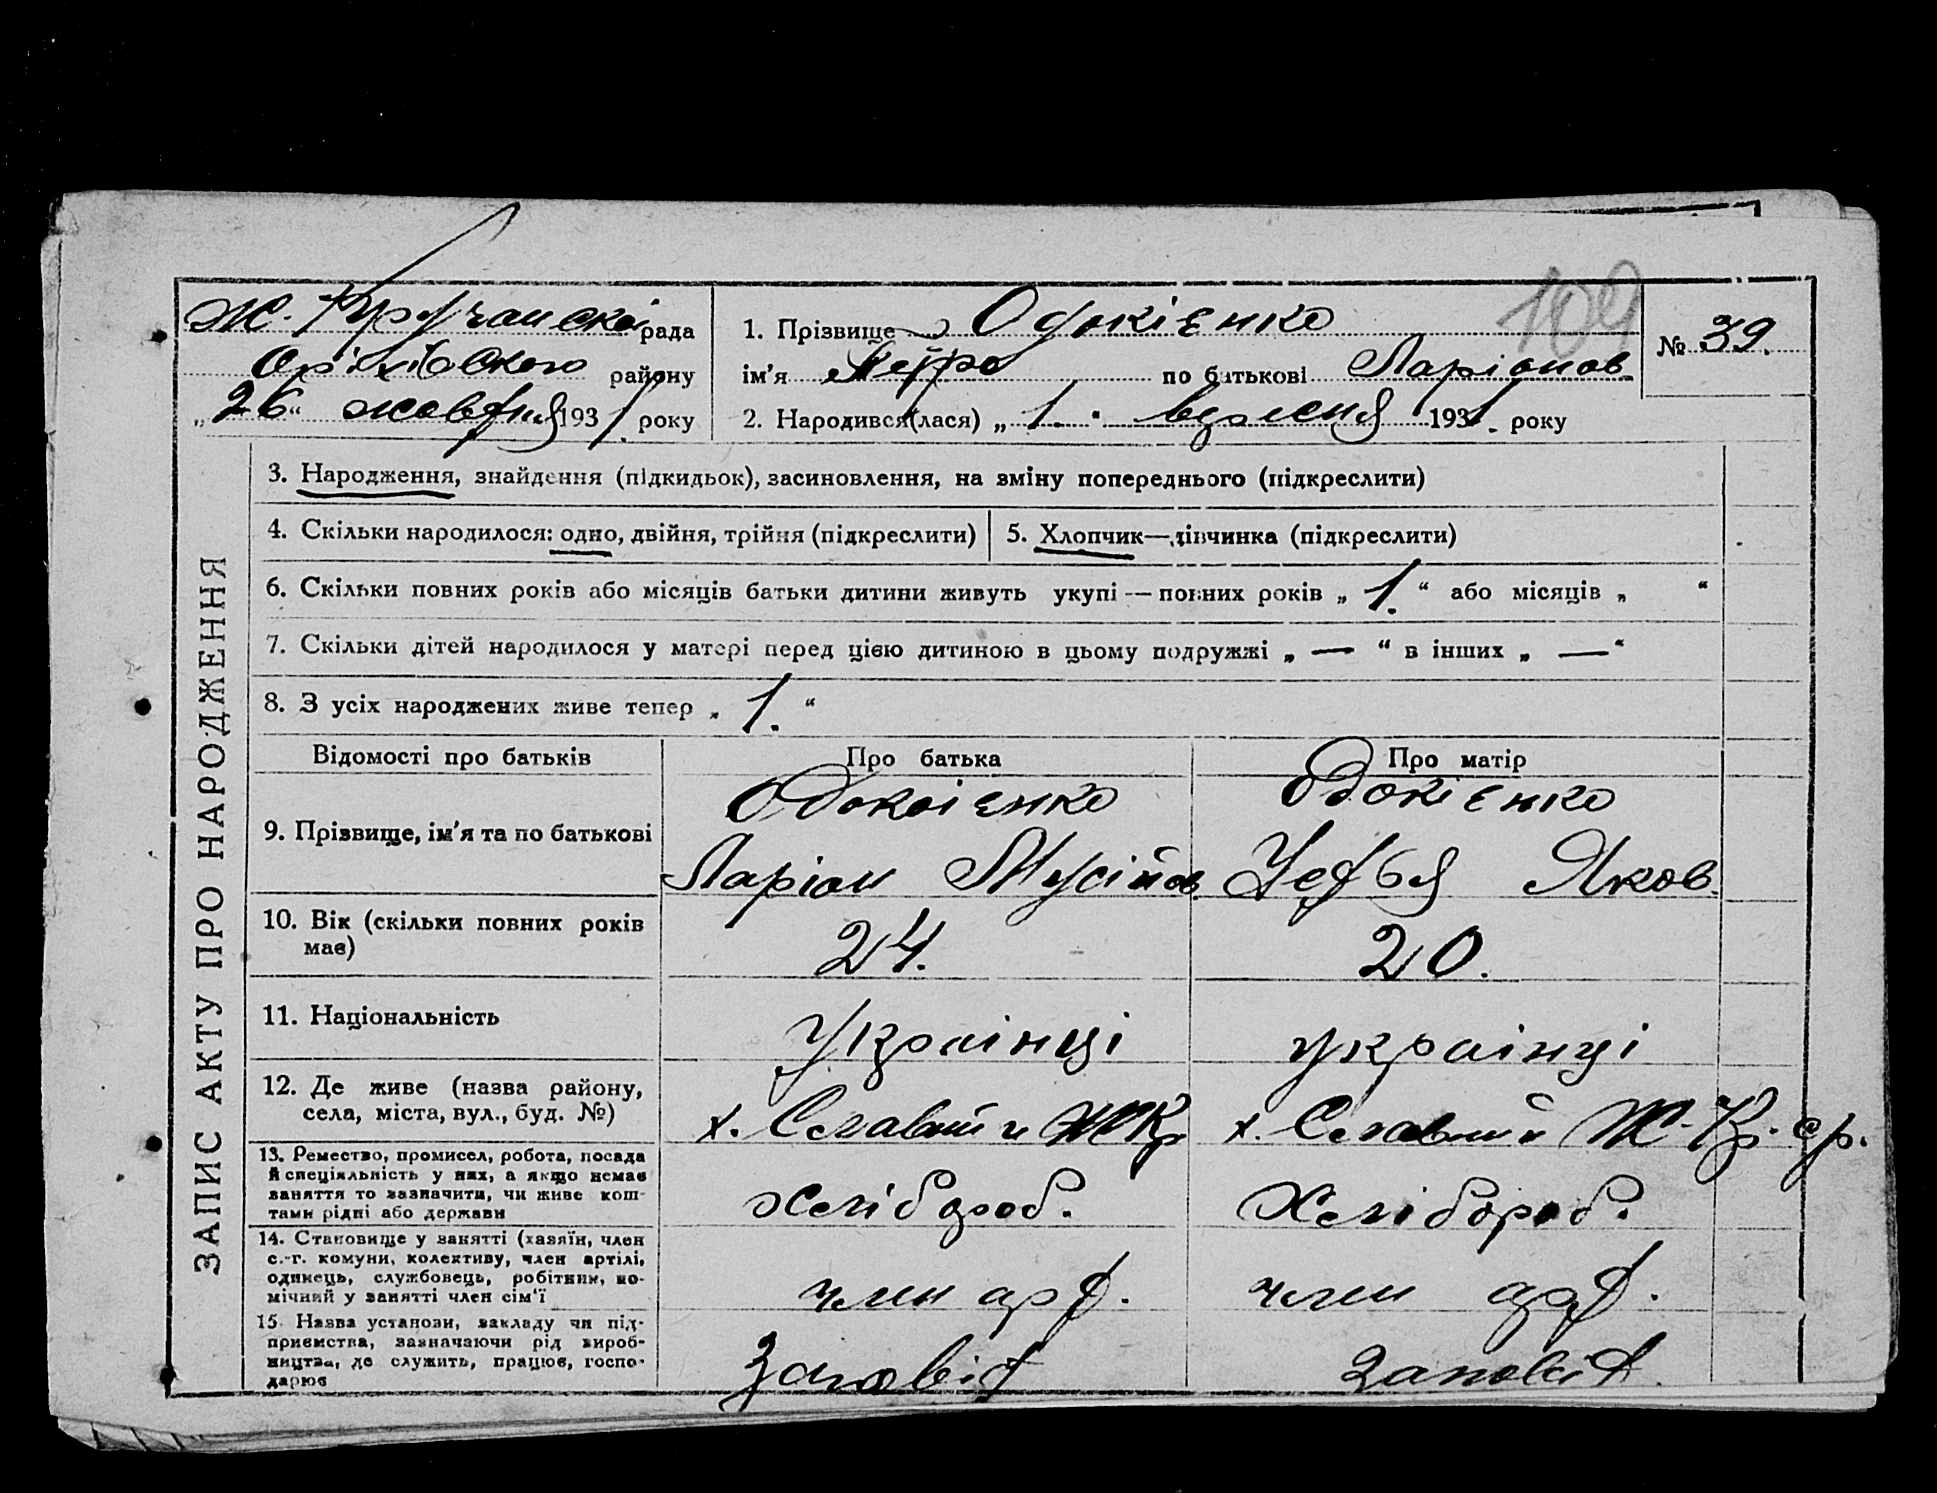 109
М. Кручанскої рада
району
„26“ жовтня 1931 року
1. Прізвище Одокієнко
ім'я Петро по батькові Ларіонов
2. Народився(лася) „1.“ вересня 1931. року
№ 39.
ЗАПИС АКТУ ПРО НАРОДЖЕННЯ
3. Народження, знайдення (підкидьок), засиновлення, на зміну попереднього (підкреслити)
4. Скільки народилося: одно, двійня, трійня (підкреслити)
5. Хлопчик—дівчинка (підкреслити)
6. Скільки повних років або місяців батьки дитини живуть укупі — повних років „1.“ або місяців „ “
7. Скільки дітей народилося у матері перед цією дитиною в цьому подружжі „—“ в інших „—“
8. З усіх народжених живе тепер „1.“
Відомості про батьків
Про батька
Про матір
9. Прізвище, ім'я та по батькові
Одокієнко
Ларіон Мусійов
Одокієнко
Яков.
10. Вік (скільки повних років
має)
24.
20.
11. Національність
Українці
українці
12. Де живе (назва району,
села, міста, вул., буд. №)
х. Славний М Кр
х. Славний М-Кр. ср.
13. Ремество, промисел, робота, посада
й спеціяльність у них, а якщо немає
заняття то зазначити, чи живе кош-
тами рідні або держави
хлібороб.
Хлібороб.
14. Становище у занятті (хазяїн, член
с.-г. комуни, колективу, член артілі,
одинець, службовець, робітник, по-
мічний у занятті член сім'ї
член арт.
член арт.
15. Назва установи, закладу чи під-
приємства, зазначаючи рід вироб-
ництва, де служить, працює, госпо-
дарює
Заповіт
Заповіт.